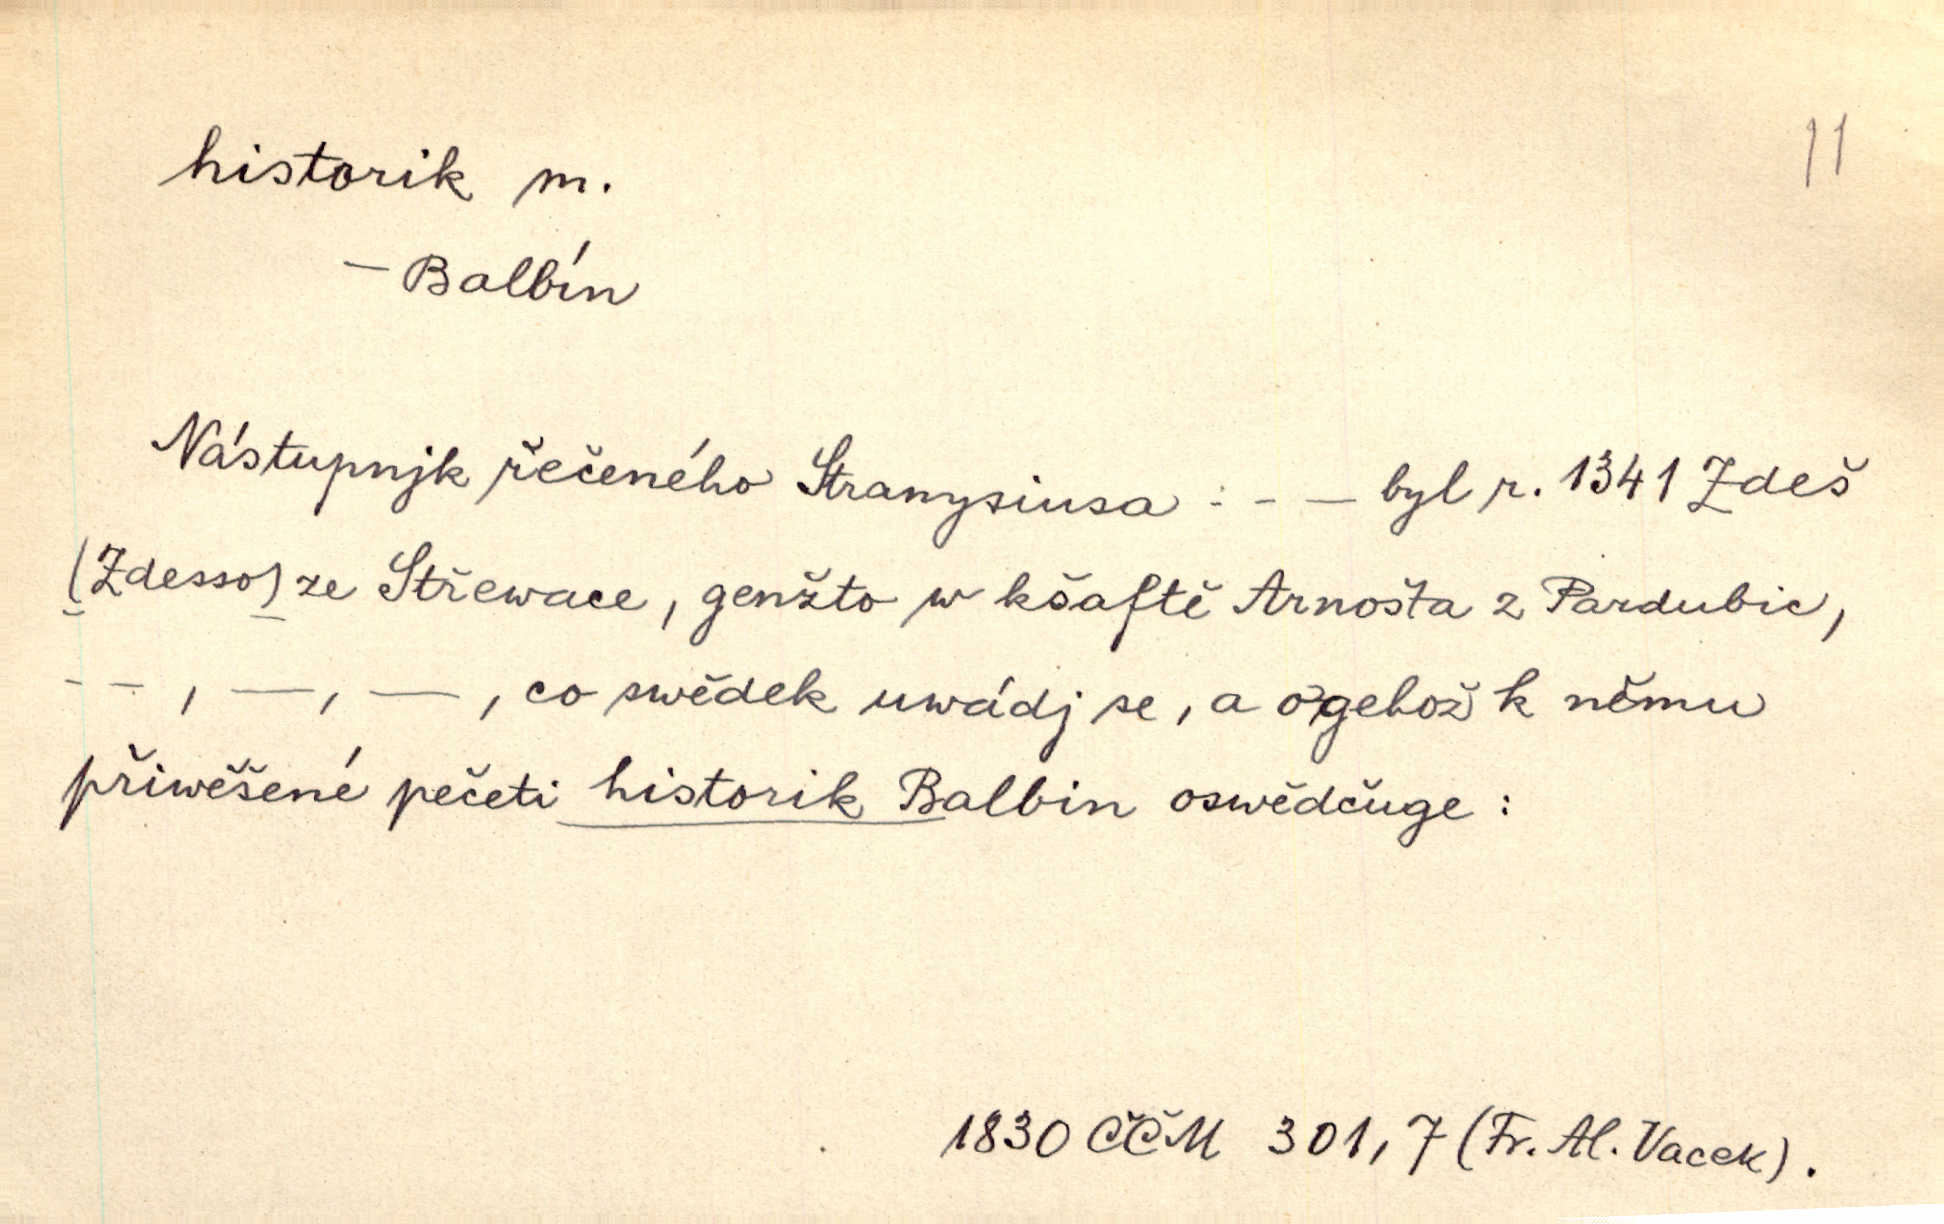 11
historik m.
– Balbín
Nástupnjk řečeného Stranysiusa : - — byl r. 1341 Zdeš
(Zdesso) ze Střewace, genžto w kšaftě Arnošta z Pardubic,
- - , — , — , co swědek uwádj se, a o gehož k němu
přiwěšené pečeti historik Balbin oswědčuge :
1830 ČČM 301, 7 (Fr. Al. Vacek).